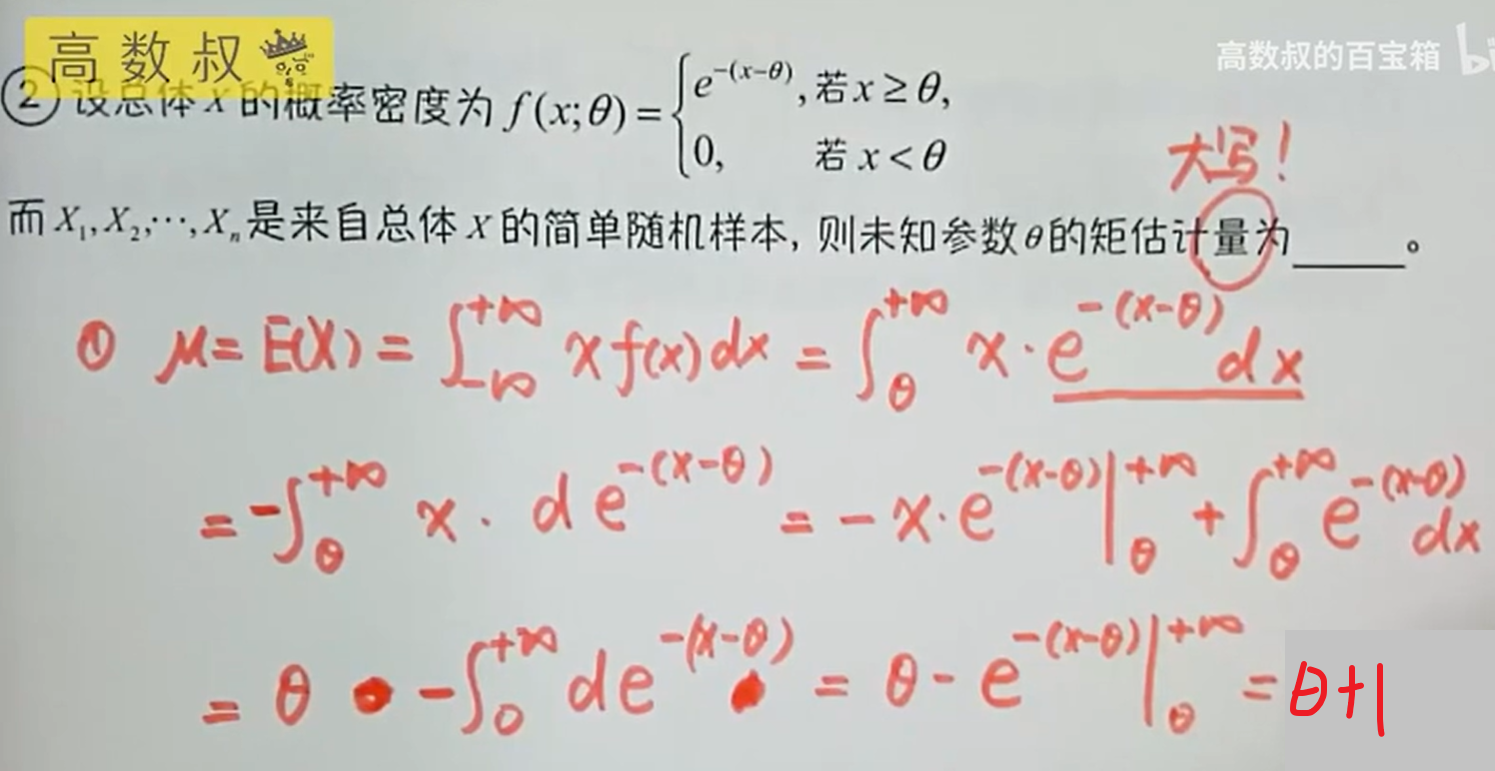 高数叔
高数叔的百宝箱
② 设总体 X 的概率密度为 f(x;θ) = { e^{-(x-θ)}, 若 x ≥ θ,
0, 若 x < θ
大写!
而 X₁, X₂, ⋯, Xₙ 是来自总体 X 的简单随机样本, 则未知参数 θ 的矩估计量为______。
① μ = E(X) = ∫_{-∞}^{+∞} x f(x) dx = ∫_θ^{+∞} x · e^{-(x-θ)} dx
= -∫_θ^{+∞} x · d e^{-(x-θ)} = -x · e^{-(x-θ)} |_θ^{+∞} + ∫_θ^{+∞} e^{-(x-θ)} dx
= θ - ∫_θ^{+∞} d e^{-(x-θ)} = θ - e^{-(x-θ)} |_θ^{+∞} = θ+1